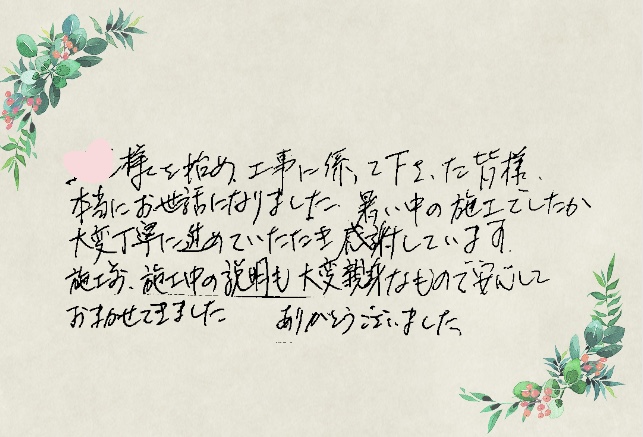 様を始め、工事に係って下さった皆様、
本当にお世話になりました。暑い中の施工でしたが
大変丁寧に進めていただき感謝しています。
施工前、施工中の説明も大変親身なもので安心して
おまかせできました ありがとうございました。